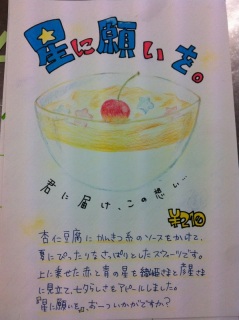 星に願いを。
君に届け、この想い…
¥210
杏仁豆腐にかんきつ系のソースをかけて、
夏にぴったりなさっぱりとしたスウィーツです。
上に乗せた赤と青の星を織姫さまと彦星さま
に見立て、七夕らしさをアピールしました。
『星に願いを。』お一ついかがですか？